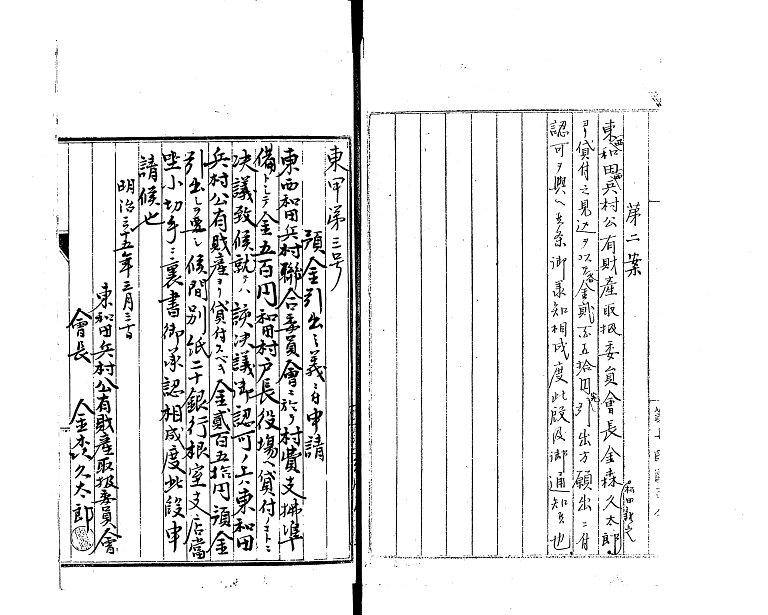 第二案
東和田兵村公有財産取扱委員會長金森久太郎
ヨリ貸付之見込ヲ以テ金貳百五拾円引出方願出ニ付
認可ヲ與ヘ候条御承知相成度此段及御通知候也
東甲第三号
預金引出之義ニ付申請
東西和田兵村聯合委員會ニ於テ村費支拂準
備トシテ金五百円和田村戸長役場ヘ貸付ノコトニ
決議致候就テハ該決議御認可ノ上ハ東和田
兵村公有財産ヨリ貸付スベキ金貳百五拾円預金
引出シヲ要シ候間別紙二十銀行根室支店當
坐小切手ニ裏書御承認相成度此段申
請候也
明治三十五年三月三十日
東和田兵村公有財産取扱委員會
會長 金森久太郎